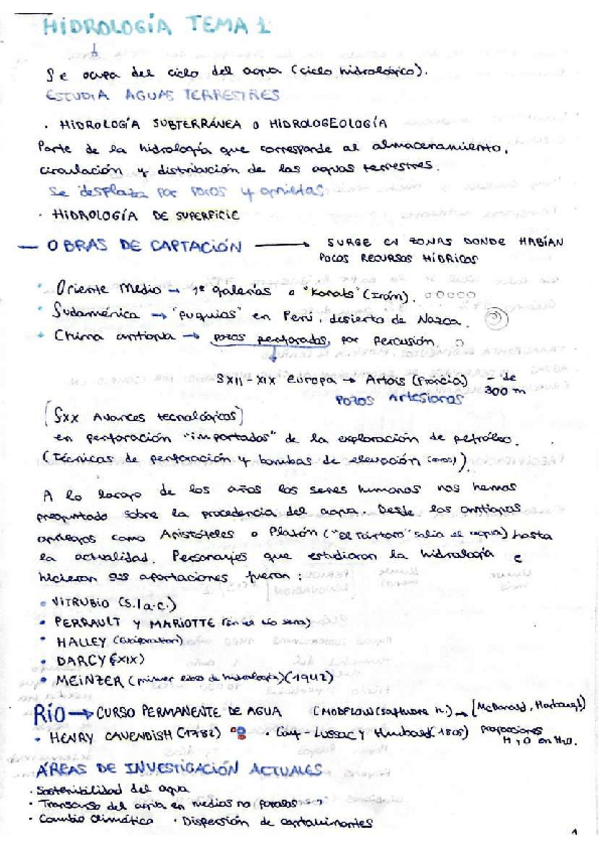 HIDROLOGÍA TEMA 1
Se ocupa del ciclo del agua (ciclo hidrológico).
ESTUDIA AGUAS TERRESTRES
· HIDROLOGÍA SUBTERRÁNEA O HIDROLOGEOLOGÍA
Parte de la hidrología que corresponde al almacenamiento,
circulación y distribución de las aguas terrestres.
Se desplaza por poros y grietas
· HIDROLOGÍA DE SUPERFICIE
— OBRAS DE CAPTACIÓN → SURGE EN ZONAS DONDE HABÍAN
POCOS RECURSOS HÍDRICOS
· Oriente Medio → 1ª galerías o "Kanats" (Irán).
· Sudamérica → "puquias" en Perú, desierto de Nazca.
· China antigua → pozos perforados, por percusión.
SXII-XIX Europa → Artois (Francia) - de
300 m
POZOS ARTESIANOS
[SXX Avances tecnológicos]
en perforación "importados" de la exploración de petróleo.
(Técnicas de perforación y bombas de elevación).
A lo largo de los años los seres humanos nos hemos
preguntado sobre la procedencia del agua. Desde los antiguos
griegos como Aristóteles o Platón ("del Tártaro" salía el agua) hasta
la actualidad. Personajes que estudiaron la hidrología e
hicieron sus aportaciones fueron:
· VITRUBIO (S.I a.c.)
· PERRAULT Y MARIOTTE (en el río Sena)
· HALLEY (Evaporation)
· DARCY (SXIX)
· MEINZER (primer libro de hidrología) (1942)
RÍO → CURSO PERMANENTE DE AGUA (MODFLOW (software h.) → [McDonald, Harbaugh]
· HENRY CAVENDISH (1782) · Gay-Lussac y Humboldt (1805) proporciones
H y O en H₂O.
ÁREAS DE INVESTIGACIÓN ACTUALES
· Sostenibilidad del agua
· Transcurso del agua en medios no porosos
· Cambio Climático · Dispersión de contaminantes
1